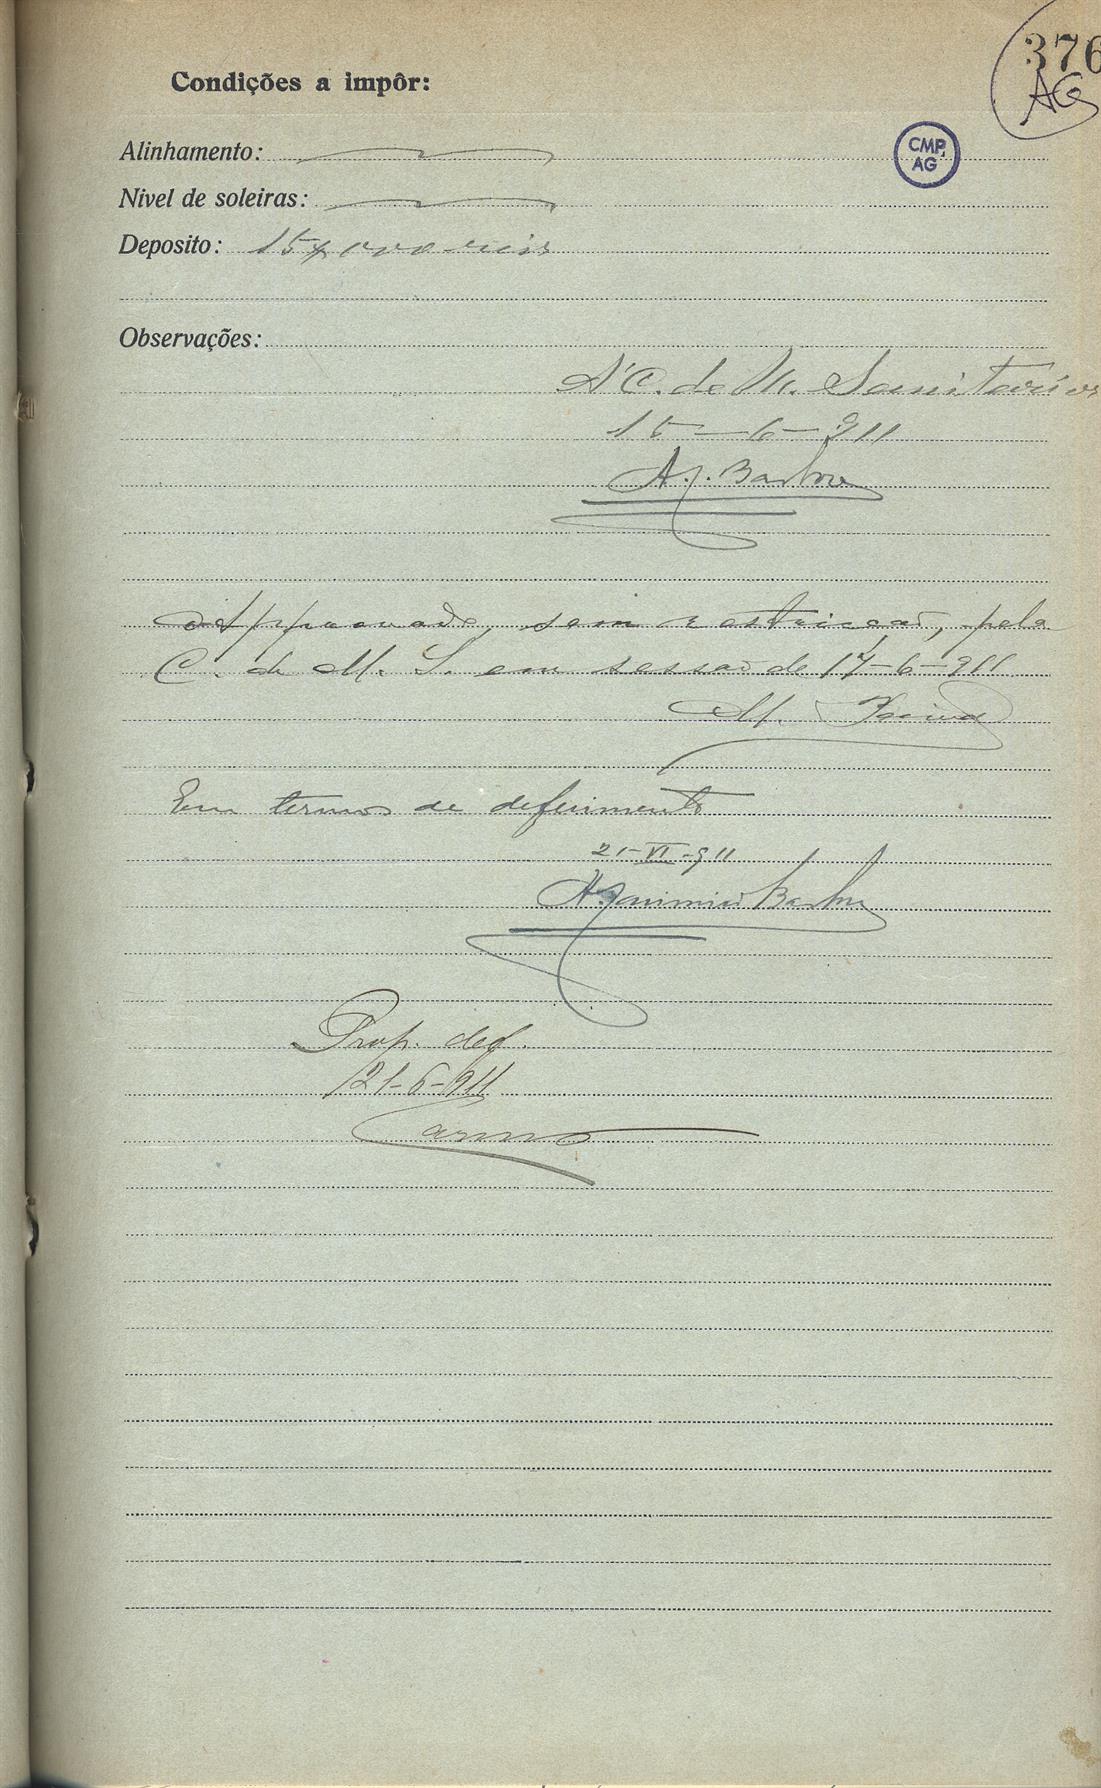 376
AG
Condições a impôr:
CMP
AG
Alinhamento:
Nivel de soleiras:
Deposito: 15$000 reis
Observações:
A' C. de M. Sanitarios
15-6-911
A. J. Barbosa
Approvado, sem restricção, pela
C. de M. S. em sessão de 17-6-911
M.
Em termos de deferimento
21-VI-911
Barbosa
Prop. def.
21-6-911